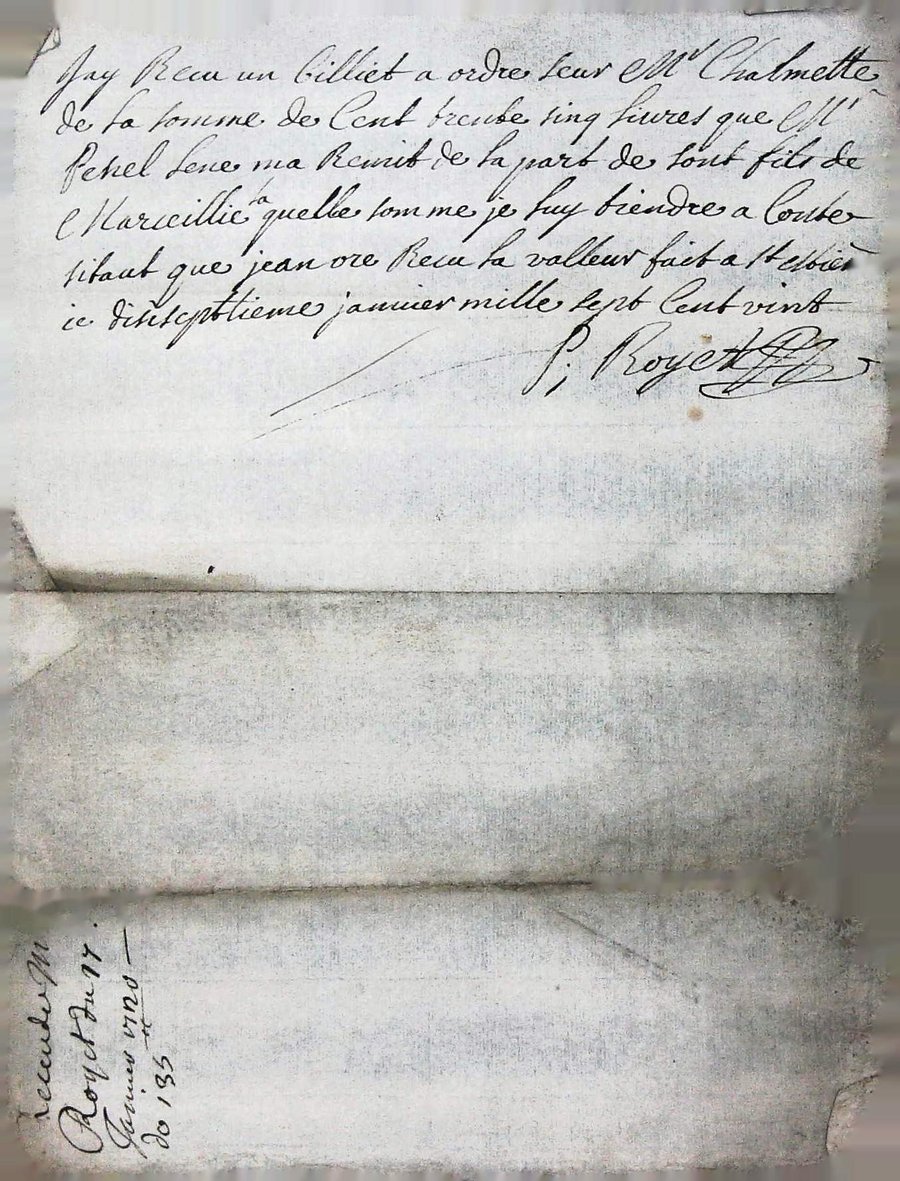 Jay Receu un billiet a ordre seur Mr Chalmette
de la somme de Cent trente sinq livres que Mr
Penel Lene ma Remit de la part de sont fils de
Marceillie la quelle somme je luy tiendre a Conte
sitaut que jean ore Receu la valleur fait a St
ce disiseptieme janvier mille sept Cent vint
P; Royet
receu de M
Royet du 17
Janvier 1720
de 135 ll